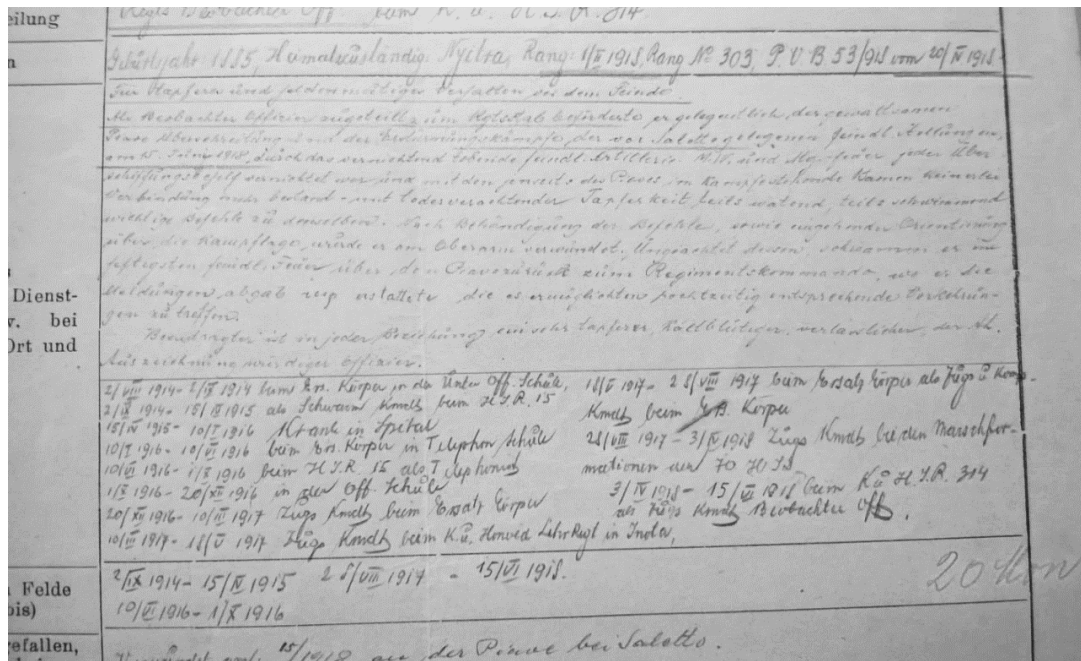 eilung
Regts Beobachter Off. beim k. u. H. I. R. 314.
n
Geburtsjahr: 1885, Heimatzuständig: Nyitra, Rang: 1/II 1918, Rang No 303, P. V. B 53/918 vom 20/IV 1918.
Für tapferes und heldenmütiges Verhalten vor dem Feinde.
Als Beobachter Offizier zugeteilt zum Rgtsstab beförderte er gelegentlich, der gewaltsamen
Piave Überschreitung und der Erstürmungskämpfe, der vor Saletto gelegenen feindl. Stellungen,
am 15. Juni 1918, durch das vernichtend tobende feindl. Artillerie. M.W. und Mg.-feuer jeder Über
schiffungsbehelf vernichtet war und mit den jenseits des Piaves im Kampfe stehende Kameraden keinerlei
Verbindung mehr bestand - mit todesverachtender Tapferkeit teils watend, teils schwimmend
wichtige Befehle zu denselben. Nach Behändigung der Befehle, sowie eingehender Orientierung
über die Kampflage, wurde er am Oberarm verwundet. Ungeachtet dessen, schwamm er im
heftigsten feindl. Feuer über den Piave zurück zum Regimentskommando, wo er die
Meldungen abgab resp. erstattete die es ermöglichten rechtzeitig entsprechende Vorkehrun-
gen zu treffen.
Beantragter ist in jeder Beziehung ein sehr tapferer, kaltblütiger, verlässlicher, der Ah.
Auszeichnung würdiger Offizier.
Dienst-
v. bei
Ort und
2/VIII 1914 - 2/IX 1914 beim Ers. Körper in der Unter Off. Schule,
2/IX 1914 - 15/IV 1915 als Schwarm Kmdt beim H. I. R. 15
15/IV 1915 - 10/I 1916 Krank in Spital
10/I 1916 - 10/VI 1916 beim Ers. Körper in Telephon Schule
10/VI 1916 - 1/X 1916 beim H. I. R. 15 als Telephonist
1/X 1916 - 20/XII 1916 in der Off. Schule
20/XII 1916 - 10/III 1917 Zugs Kmdt beim Ersatz Körper
10/III 1917 - 18/V 1917 Zugs Kmdt beim K. u. Honvéd Lehr Regt in
18/V 1917 - 28/VIII 1917 beim Ersatz Körper als Zugs u Komp-
Kmdt beim Körper
28/VIII 1917 - 3/IV 1918 Zugs Kmdt bei den Marschfor-
mationen der
3/IV 1918 - 15/VI 1918 beim K u H. I. R. 314
als Zugs Kmdt Beobachter Off.
Felde
bis)
2/IX 1914 - 15/IV 1915 28/VIII 1917 - 15/VI 1918.
10/VI 1916 - 1/X 1916
20 Mon
efallen,
15/ 1918 an der Piave bei Saletto.